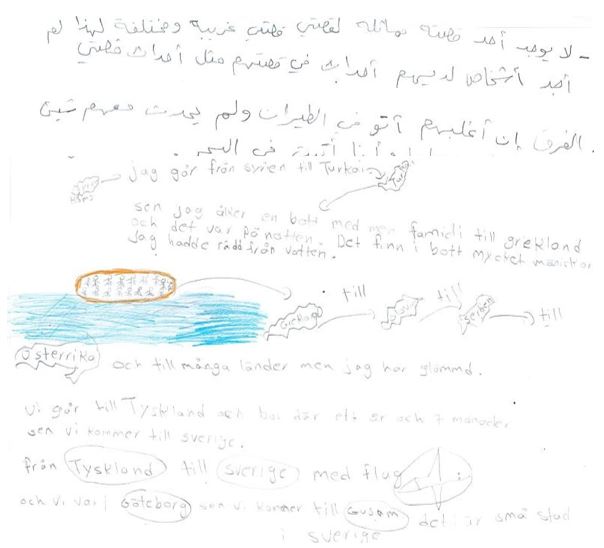 - لا يوجد أحد قصته مماثله لقصتي قصتي غريبه ومختلفة لهذا لم
أجد أشخاص لديهم أحداث في قصتهم مثل أحداث قصتي
الفرق إن أغلبهم أتو في الطيران ولم يحدث معهم شيئ.
أنا أتيت في البحر
jag går från syrien till Turkai
sen jag åker en bott med men familli till grekland
och det var på natten.
Jag hadde rädd från vatten. Det finn i bott mycket människor
till till
Serbien till
Österrike och till många länder men jag har glömmd.
Vi går till Tyskland och boi där ett år och 7 månader
sen vi kommer till sverige.
från Tyskland till sverige med flug
och vi vari Göteborg sen vi kommer till Gusam det i är små stad
i sverige